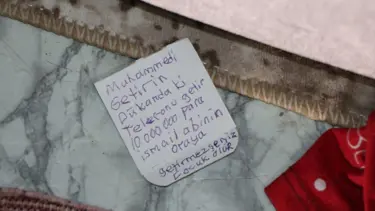 Muhammedi
Getirin
Dükandaki
Telefonu getir
10.000 000 para
ismail abinin
oraya
getirmezseniz
Çocuk ölür